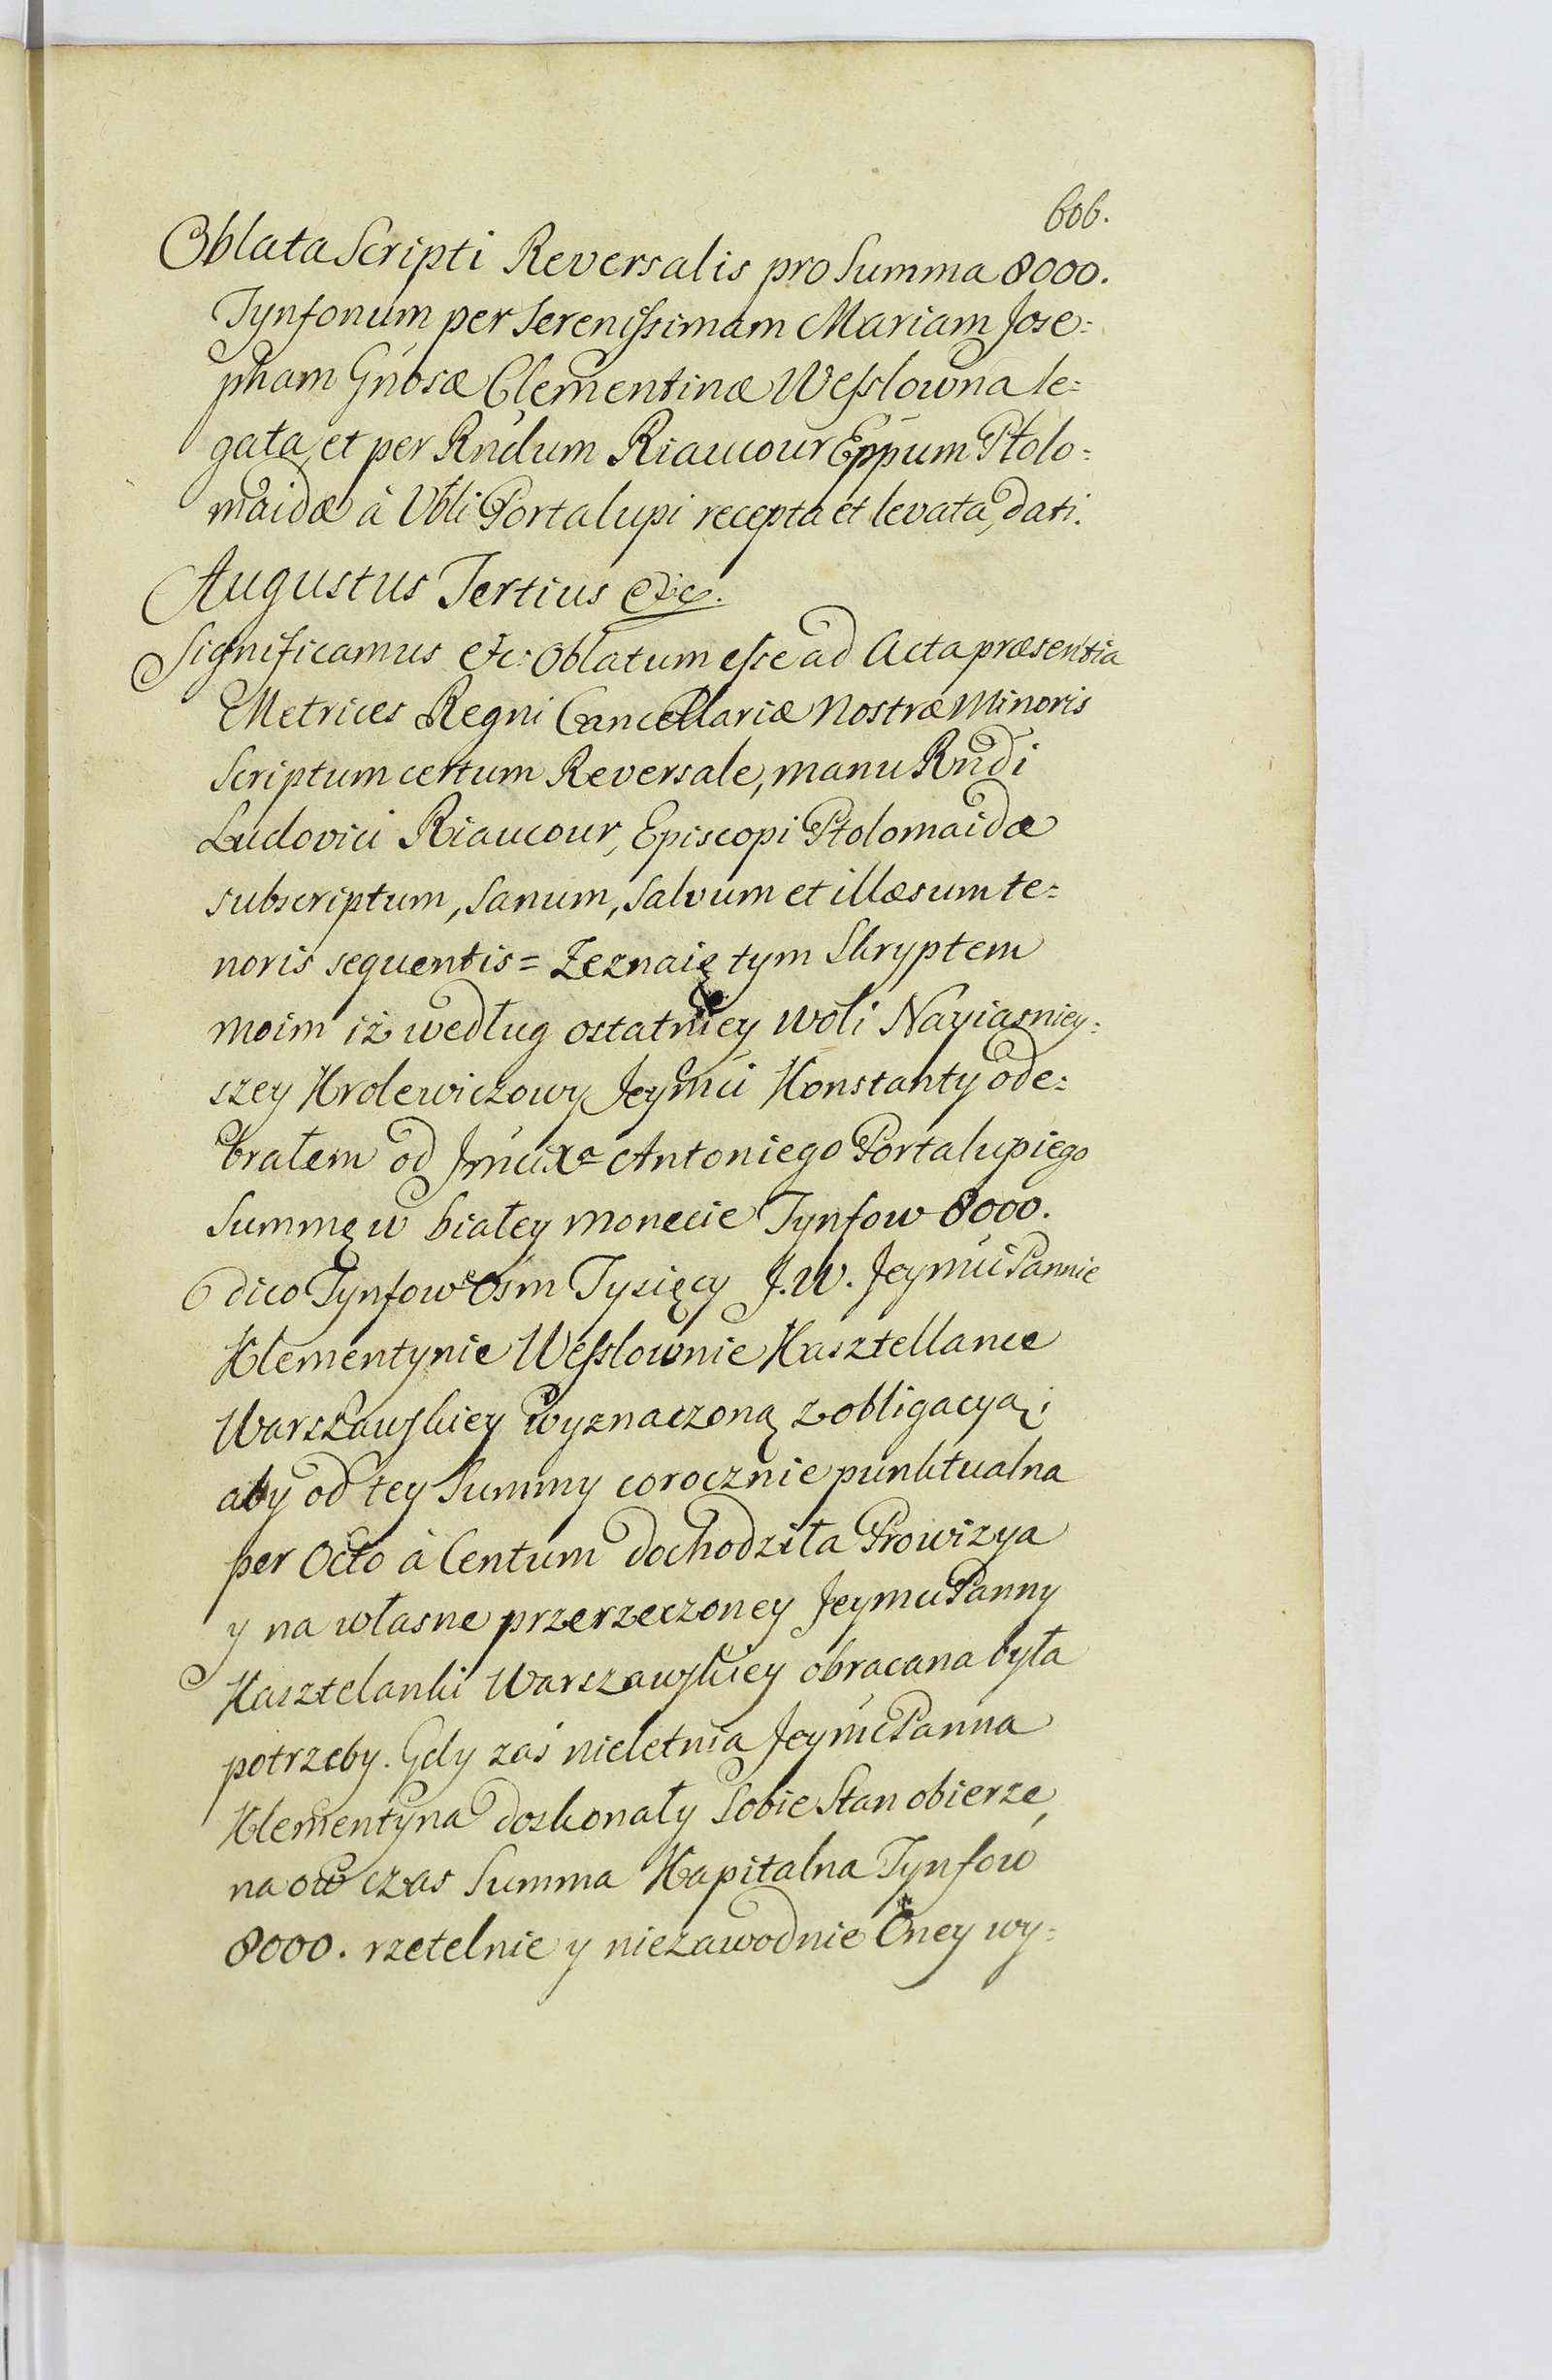 606.
Oblata Scripti Reversalis pro Summa 8000.
Tynfonum per Serenissimam Mariam Jose=
pham Gnosæ Clementinæ Wesslowna le=
gata, et per Rndum Riaucour Eppum Ptolo=
maidæ à Vbli Portalupi recepta et levata, dati.
Augustus Tertius &c.
Significamus etc: Oblatum esse ad Acta præsentia
Metrices Regni Cancellariæ Nostræ Minoris
Scriptum certum Reversale, manu Rndi
Ludovici Riaucour, Episcopi Ptolomaidæ
subscriptum, Sanum, Salvum et illæsum te=
noris sequentis = Zeznaię tym Skryptem
moim iż według ostatniey woli Nayiasniey=
szey Krolewiczowy Jeymći Konstanty ode=
brałem od Jmći Xa Antoniego Portalupiego
Summę w białey monecie Tynfow 8000.
dico Tynfow Osm Tysięcy J.W. Jeymći Pannie
Klementynie Wesslownie Kasztellance
Warszawskiey wyznaczoną z obligacyą;
aby od tey Summy corocznie punktualna
per Octo à Centum dochodziła Prowizya
y na własne przerzeczoney Jeymci Panny
Kasztelanki Warszawskiey obracana była
potrzeby. Gdy zaś nieletnia Jeymć Panna
Klementyna doskonały Sobie Stan obierze,
na ow czas Summa Kapitalna Tynfow
8000. rzetelnie y niezawodnie Oney wy=